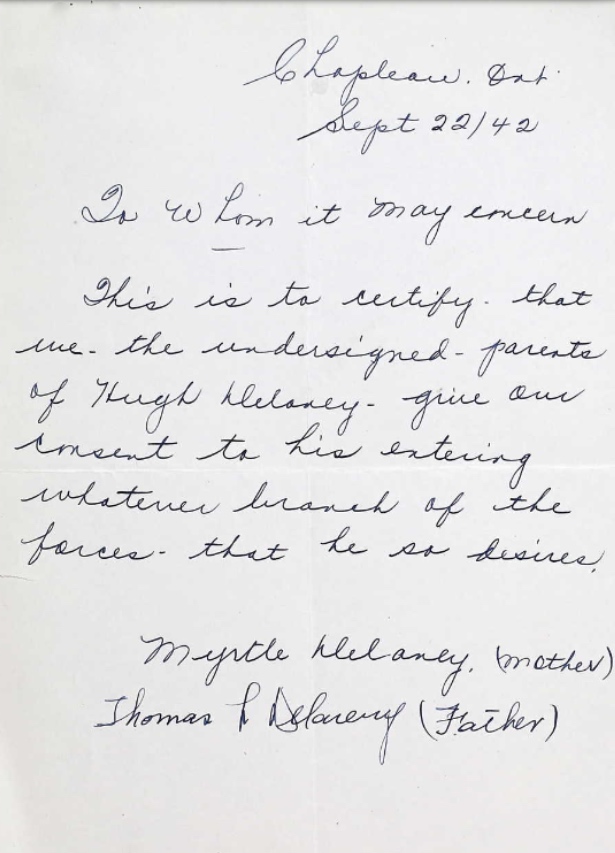 Chapleau. Ont.
Sept 22/42
To Whom it may concern
This is to certify - that
we - the undersigned - parents
of Hugh Delaney - give our
consent to his entering
whatever branch of the
forces - that he so desires.
Myrtle Delaney. (mother)
Thomas L Delaney (Father)